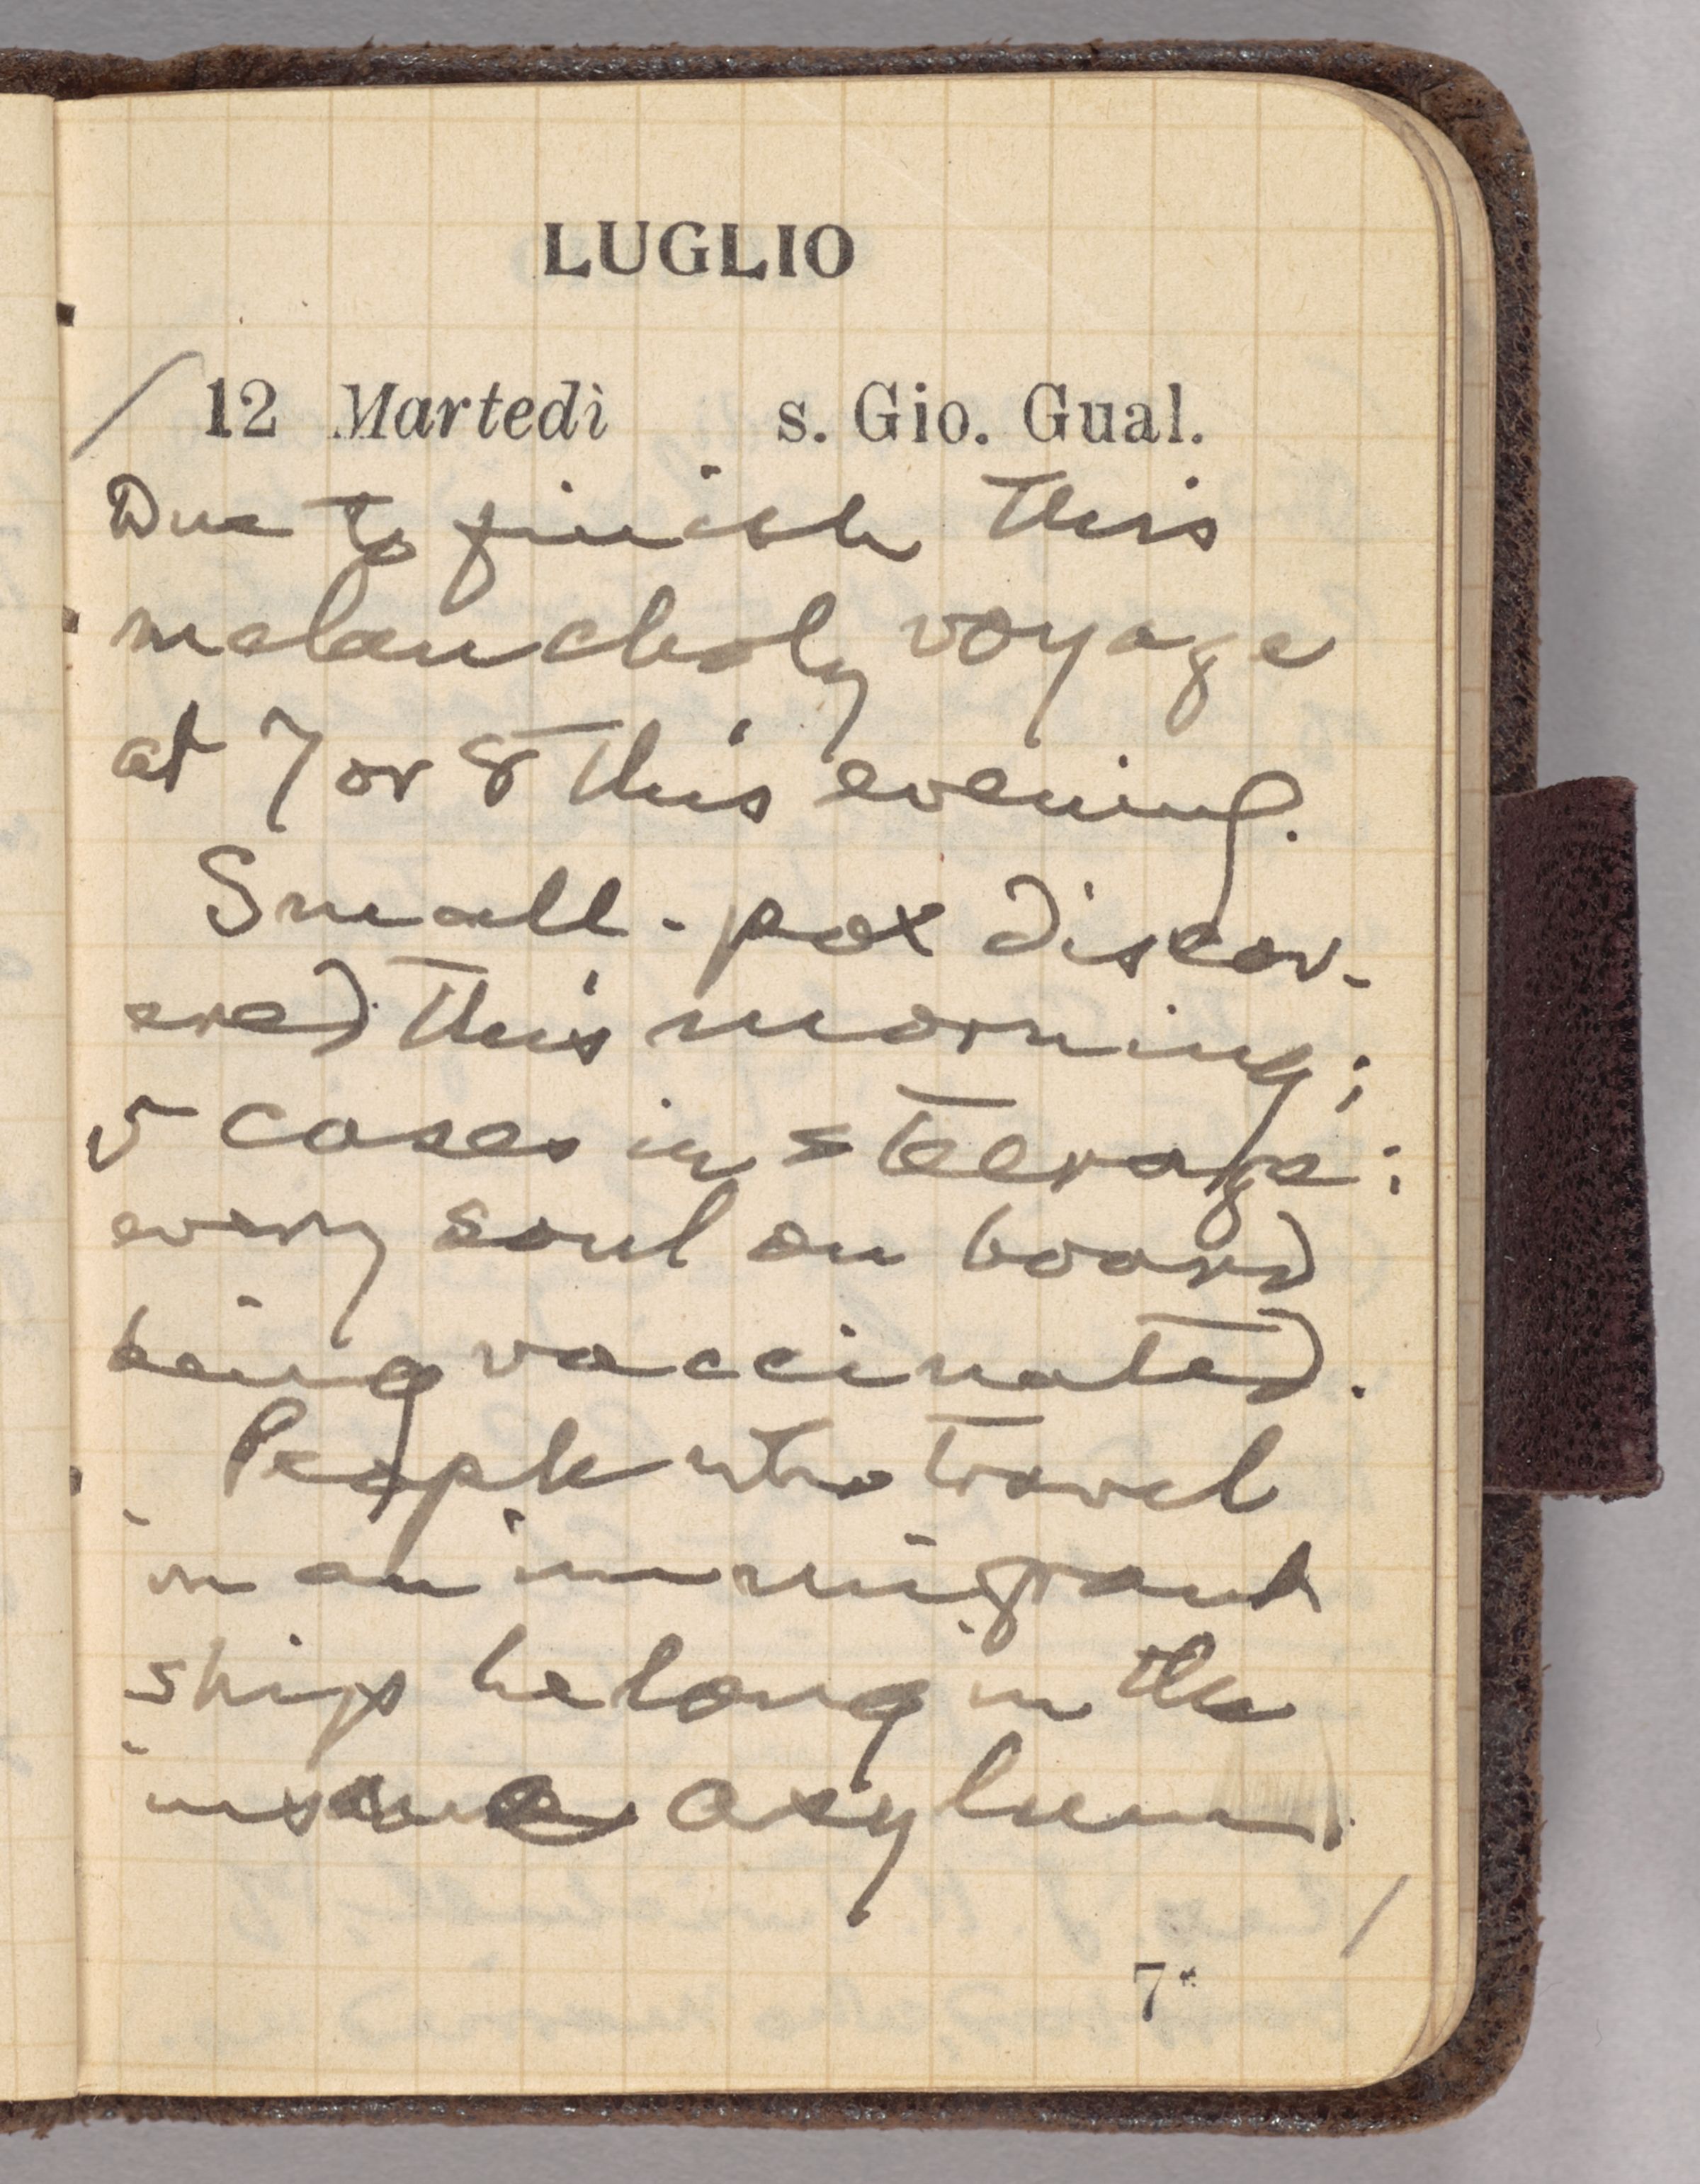 LUGLIO
12 Martedì s. Gio. Gual.
Due to finish this
melancholy voyage
at 7 or 8 this evening.
Small-pox discov-
ered this morning;
5 cases in steerage:
every soul on board
being vaccinated.
People who travel
in an immigrant
ship belong in the
insane asylum.
7*